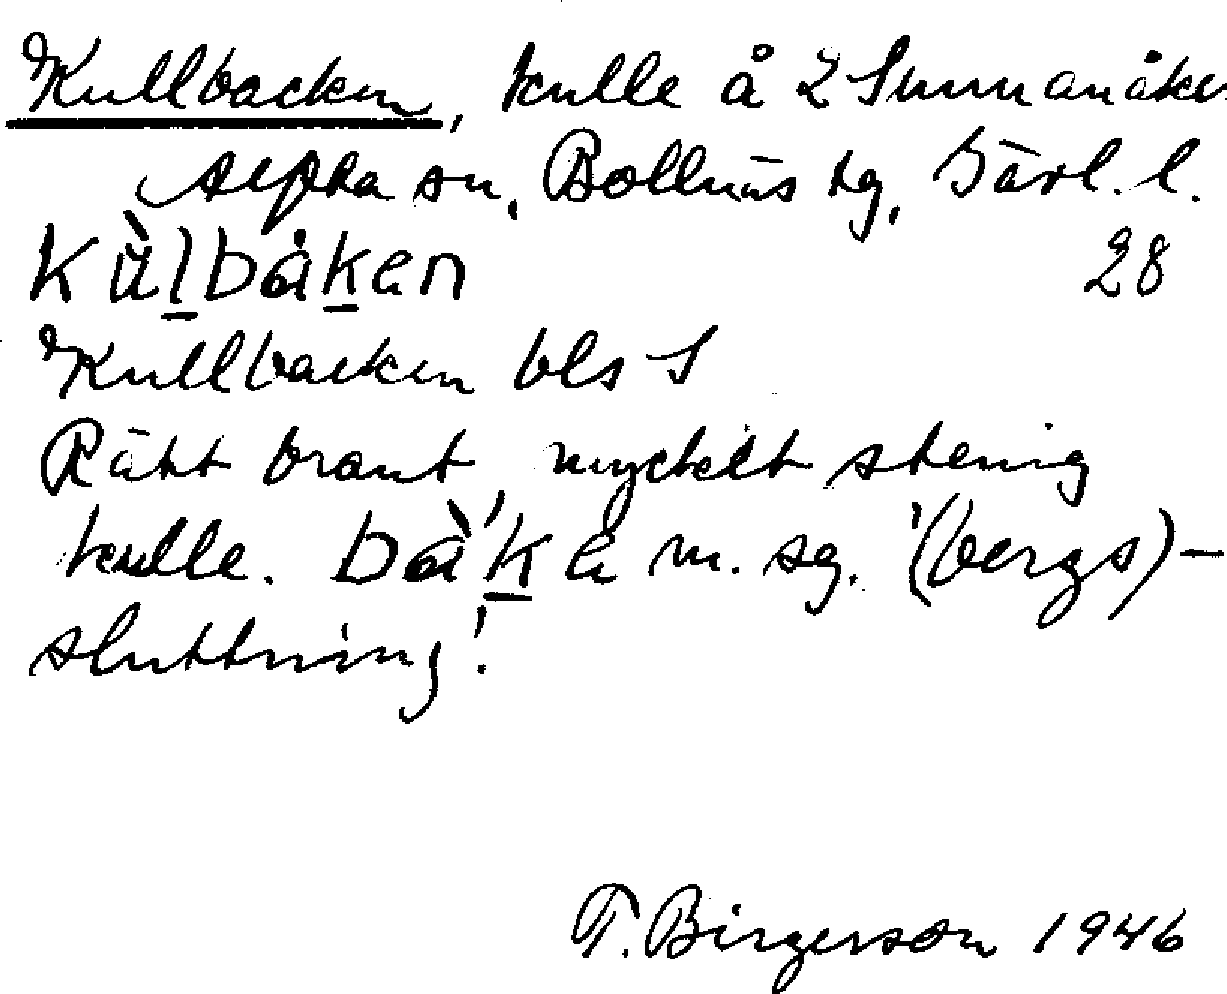 Kullbacken, kulle å 2 Sunnanåker
Alfta sn, Bollnäs tg, Gävl. l.
28
Kullbacken bls S
Rätt brant, mycket stenig
kulle. m. sg. '(bergs)-
sluttning'.
T. Birgerson 1946